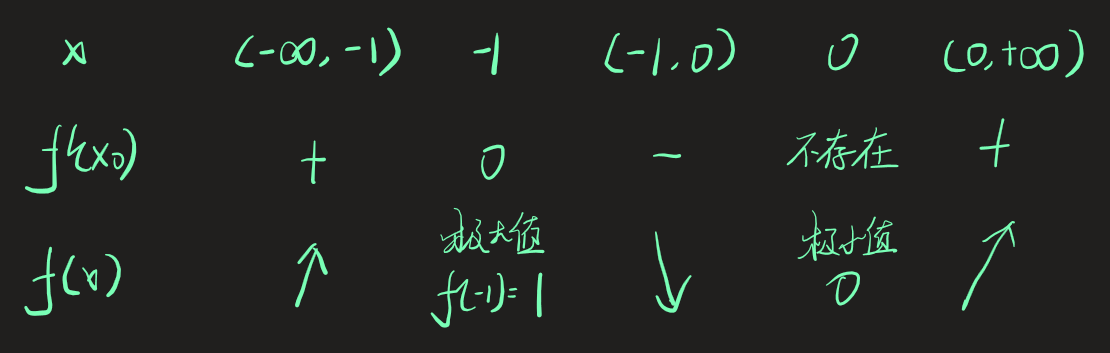 x (-∞,-1) -1 (-1,0) 0 (0,+∞)
f'(x₀) + 0 - 不存在 +
f(x) ↑ 极大值 f(-1)=1 ↓ 极小值 0 ↗